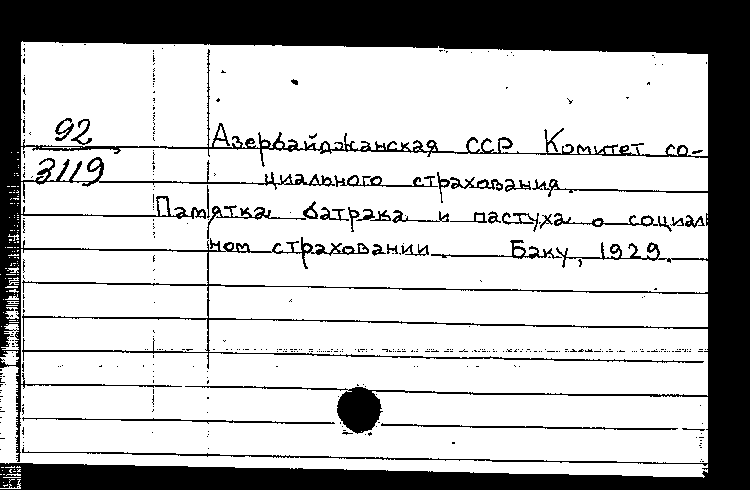 92
3119
Азербайджанская ССР. Комитет со-
циального страхования.
Памятка батрака и пастуха о социал
ном страховании. Баку, 1929.